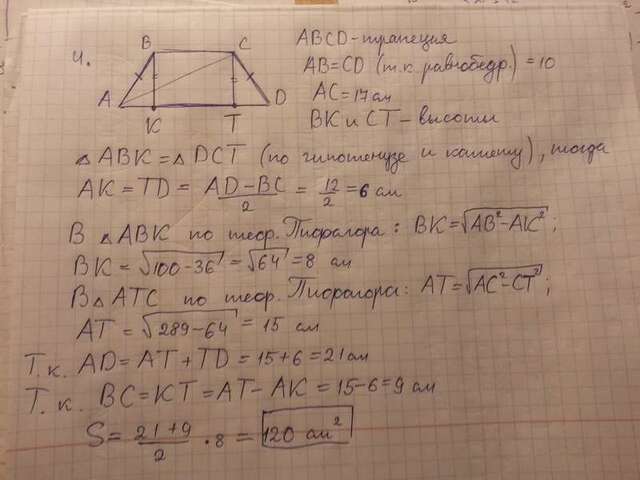 4.
B C
A D
K T
ABCD - трапеция
AB = CD (т.к. равнобедр.) = 10
AC = 17 см
BK и CT - высоты
△ ABK = △ DCT (по гипотенузе и катету), тогда
AK = TD = (AD - BC)/2 = 12/2 = 6 см
В △ ABK по теор. Пифагора: BK = √(AB² - AK²);
BK = √(100 - 36) = √64 = 8 см
В △ ATC по теор. Пифагора: AT = √(AC² - CT²);
AT = √(289 - 64) = 15 см
Т.к. AD = AT + TD = 15 + 6 = 21 см
Т.к. BC = KT = AT - AK = 15 - 6 = 9 см
S = (21 + 9)/2 · 8 = 120 см²